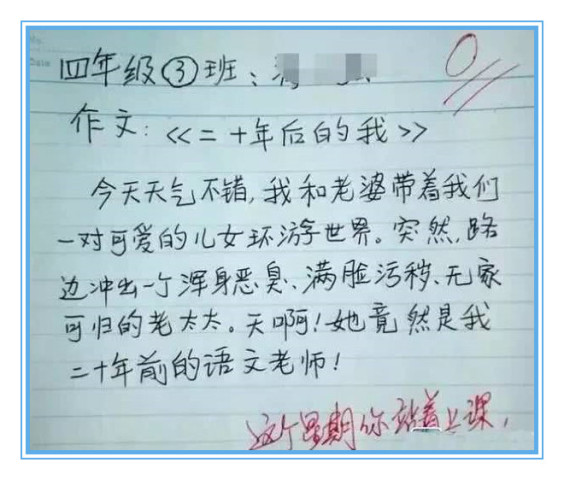 四年级③班:
0
作文:《二十年后的我》
今天天气不错,我和老婆带着我们
一对可爱的儿女环游世界。突然,路
边冲出一个浑身恶臭、满脸污秽、无家
可归的老太太。天啊!她竟然是我
二十年前的语文老师!
这个星期你站着上课,